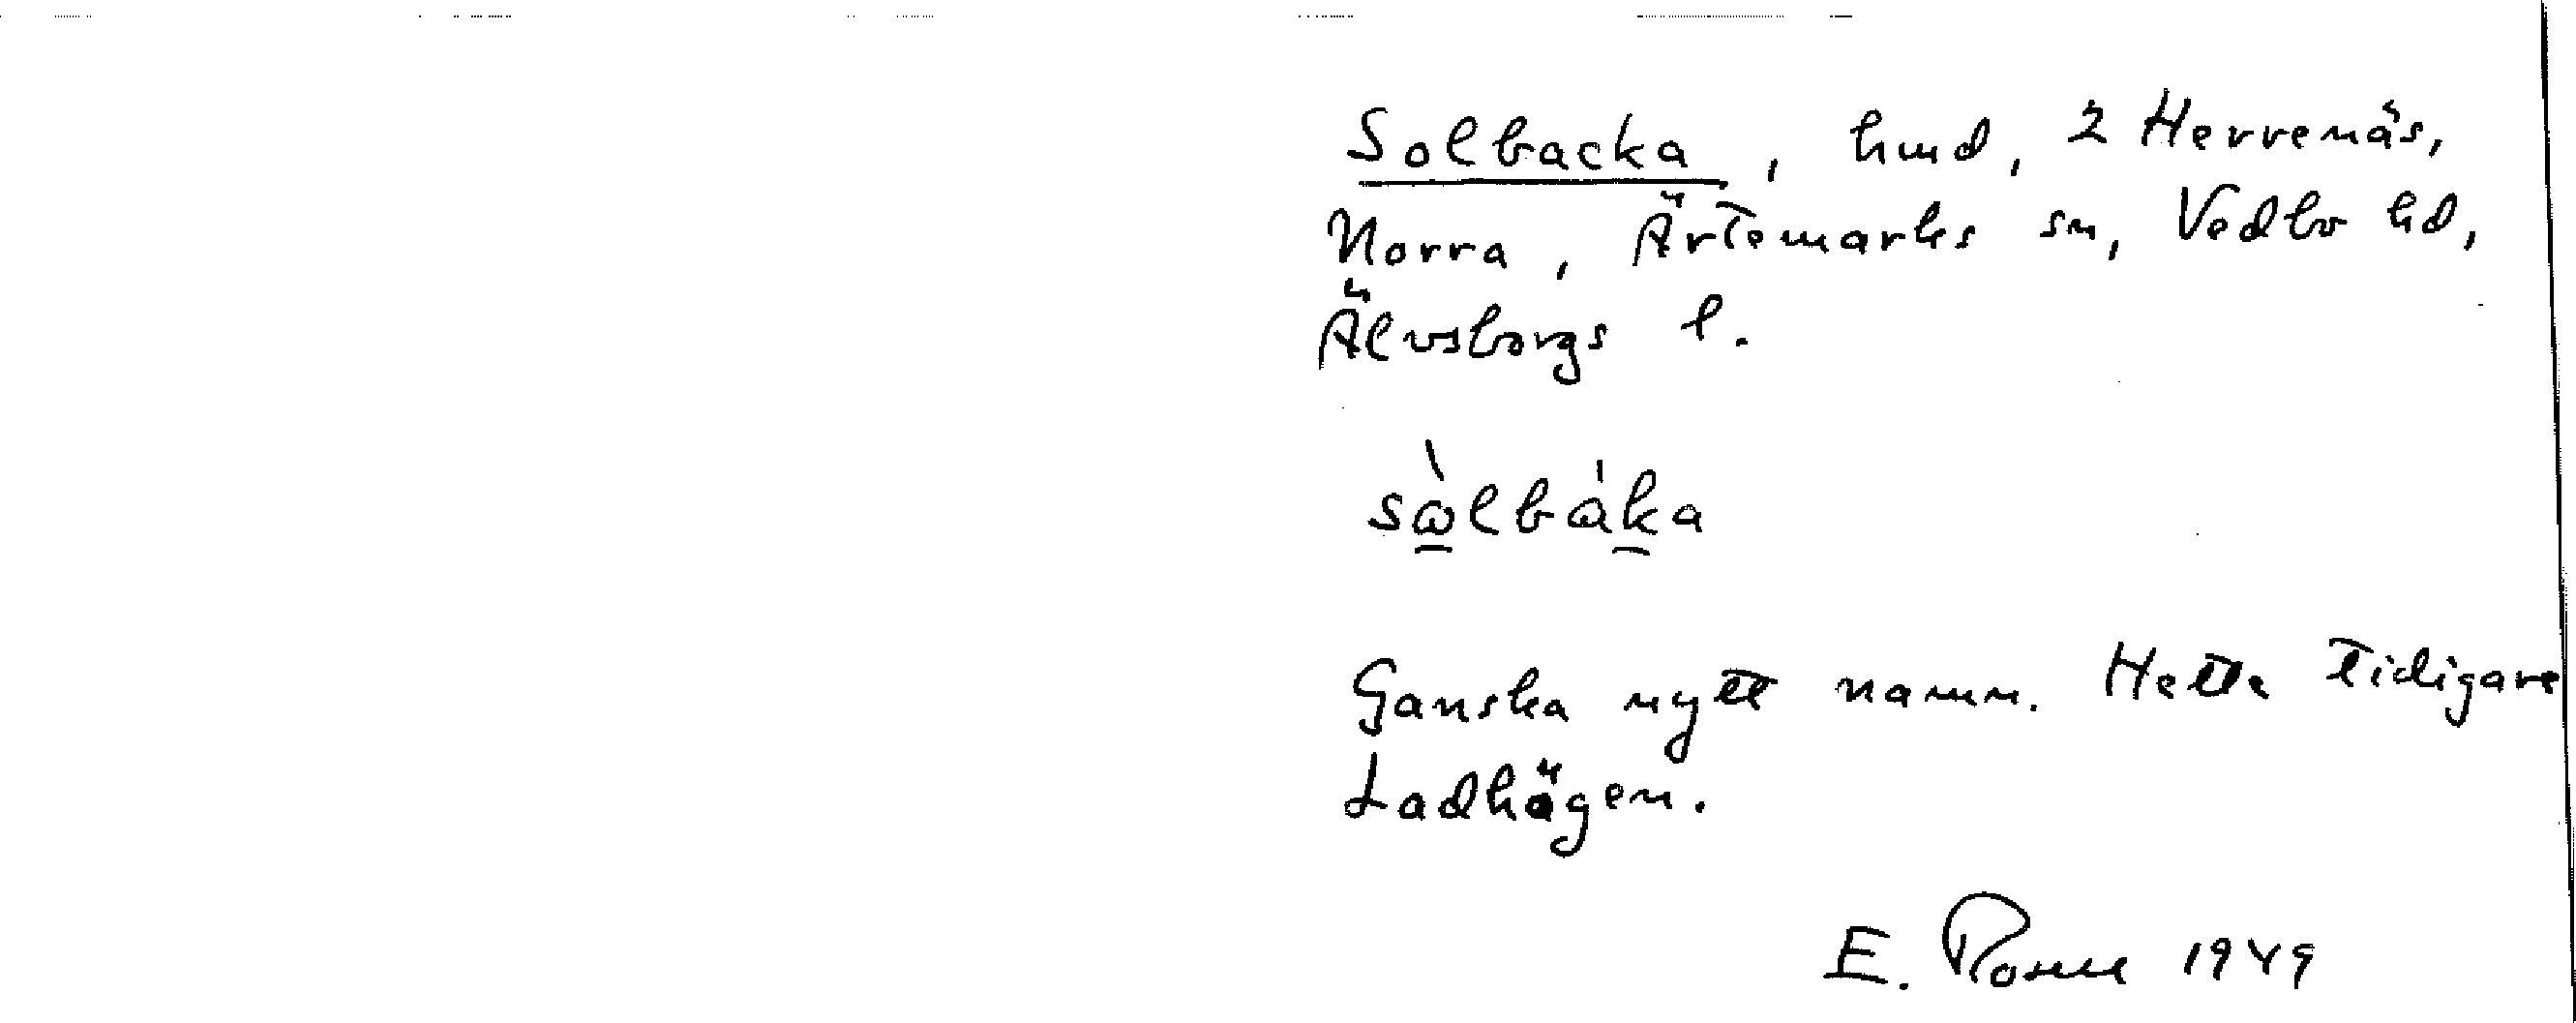 Solbacka, hmd, 2 Herrenäs,
Norra, Ärtemarks sn, Vedbo hd,
Älvsborgs l.
sὼlbáka
Ganska nytt namn. Hette tidigare
Ladhägen.
E. 1949